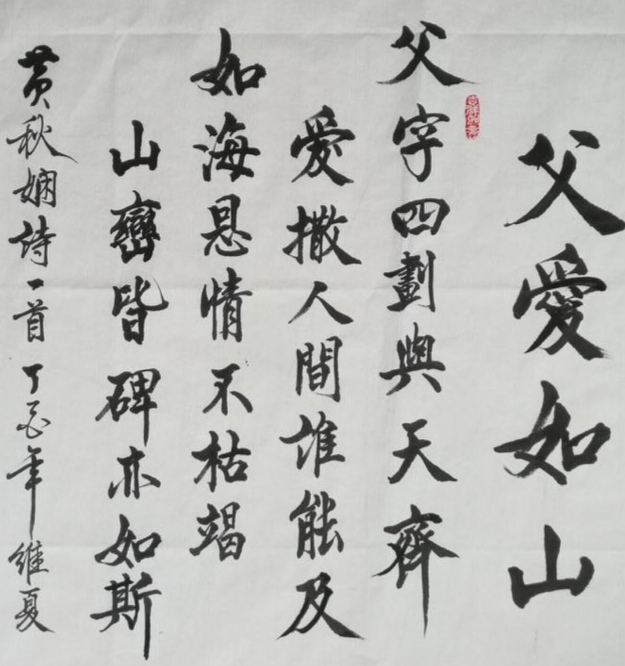 父愛如山
父字四劃與天齊
愛撒人間誰能及
如海恩情不枯竭
山巒皆碑亦如斯
黄秋嫻詩一首丁酉年維夏